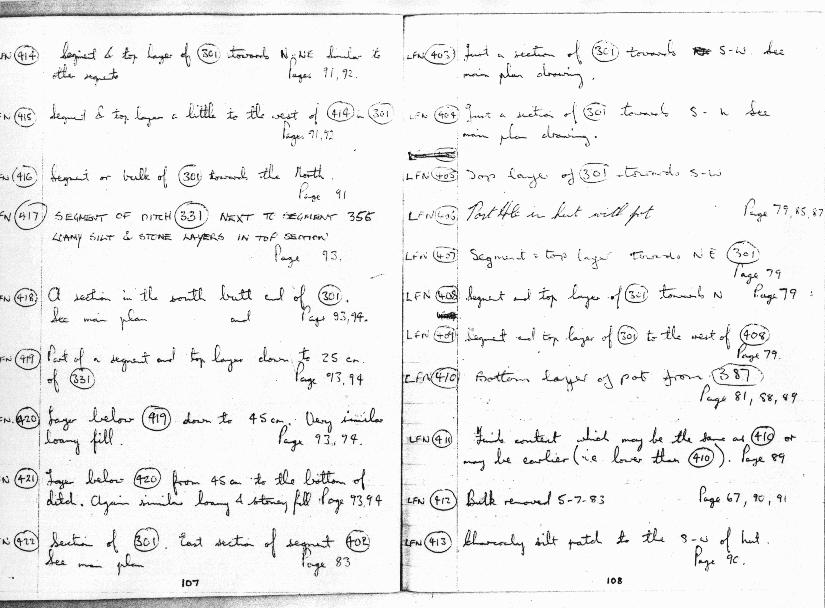 LFN 414 Segment & top layer of 301 towards N-NE similar to
other segments Pages 91, 92.
LFN 415 Segment & top layer a little to the west of 414 in 301
Pages 91, 92
LFN 416 Segment or bulk of 301 towards the North.
Page 91
FN 417 SEGMENT OF DITCH 331 NEXT TO SEGMENT 356
LOAMY SILT & STONE LAYERS IN TOP SECTION
Page 93.
FN 418 A section in the south butt end of 301.
See main plan and Page 93, 94.
FN 419 Part of a segment and top layer down to 25 cm.
of 331 Page 93, 94
FN 420 Layer below 419 down to 45 cm. Very similar
loamy fill. Page 93, 94.
FN 421 Layer below 420 from 45 cm to the bottom of
ditch. Again similar loamy & stoney fill Page 93, 94
FN 422 Section of 301. East section of segment 402
See main plan Page 83
107
LFN 403 Just a section of 301 towards S-W. See
main plan drawing.
LFN 404 Just a section of 301 towards S-W See
main plan drawing.
LFN 405 Top layer of 301 towards S-W
LFN 406 Post Hole in hut with pot Page 79, 85, 87
LFN 407 Segment & top layer towards NE 301
Page 79
LFN 408 Segment and top layer of 301 towards N Page 79
LFN 409 Segment and top layer of 301 to the west of 408
Page 79.
LFN 410 Bottom layer of pot from 387
Page 81, 88, 89
LFN 411 Finds context which may be the same as 410 or
may be earlier (i.e lower than 410). Page 89
LFN 412 Bulk removed 5-7-83 Page 67, 90, 91
LFN 413 Charcoaly silt patch to the S-W of hut.
Page 90.
108